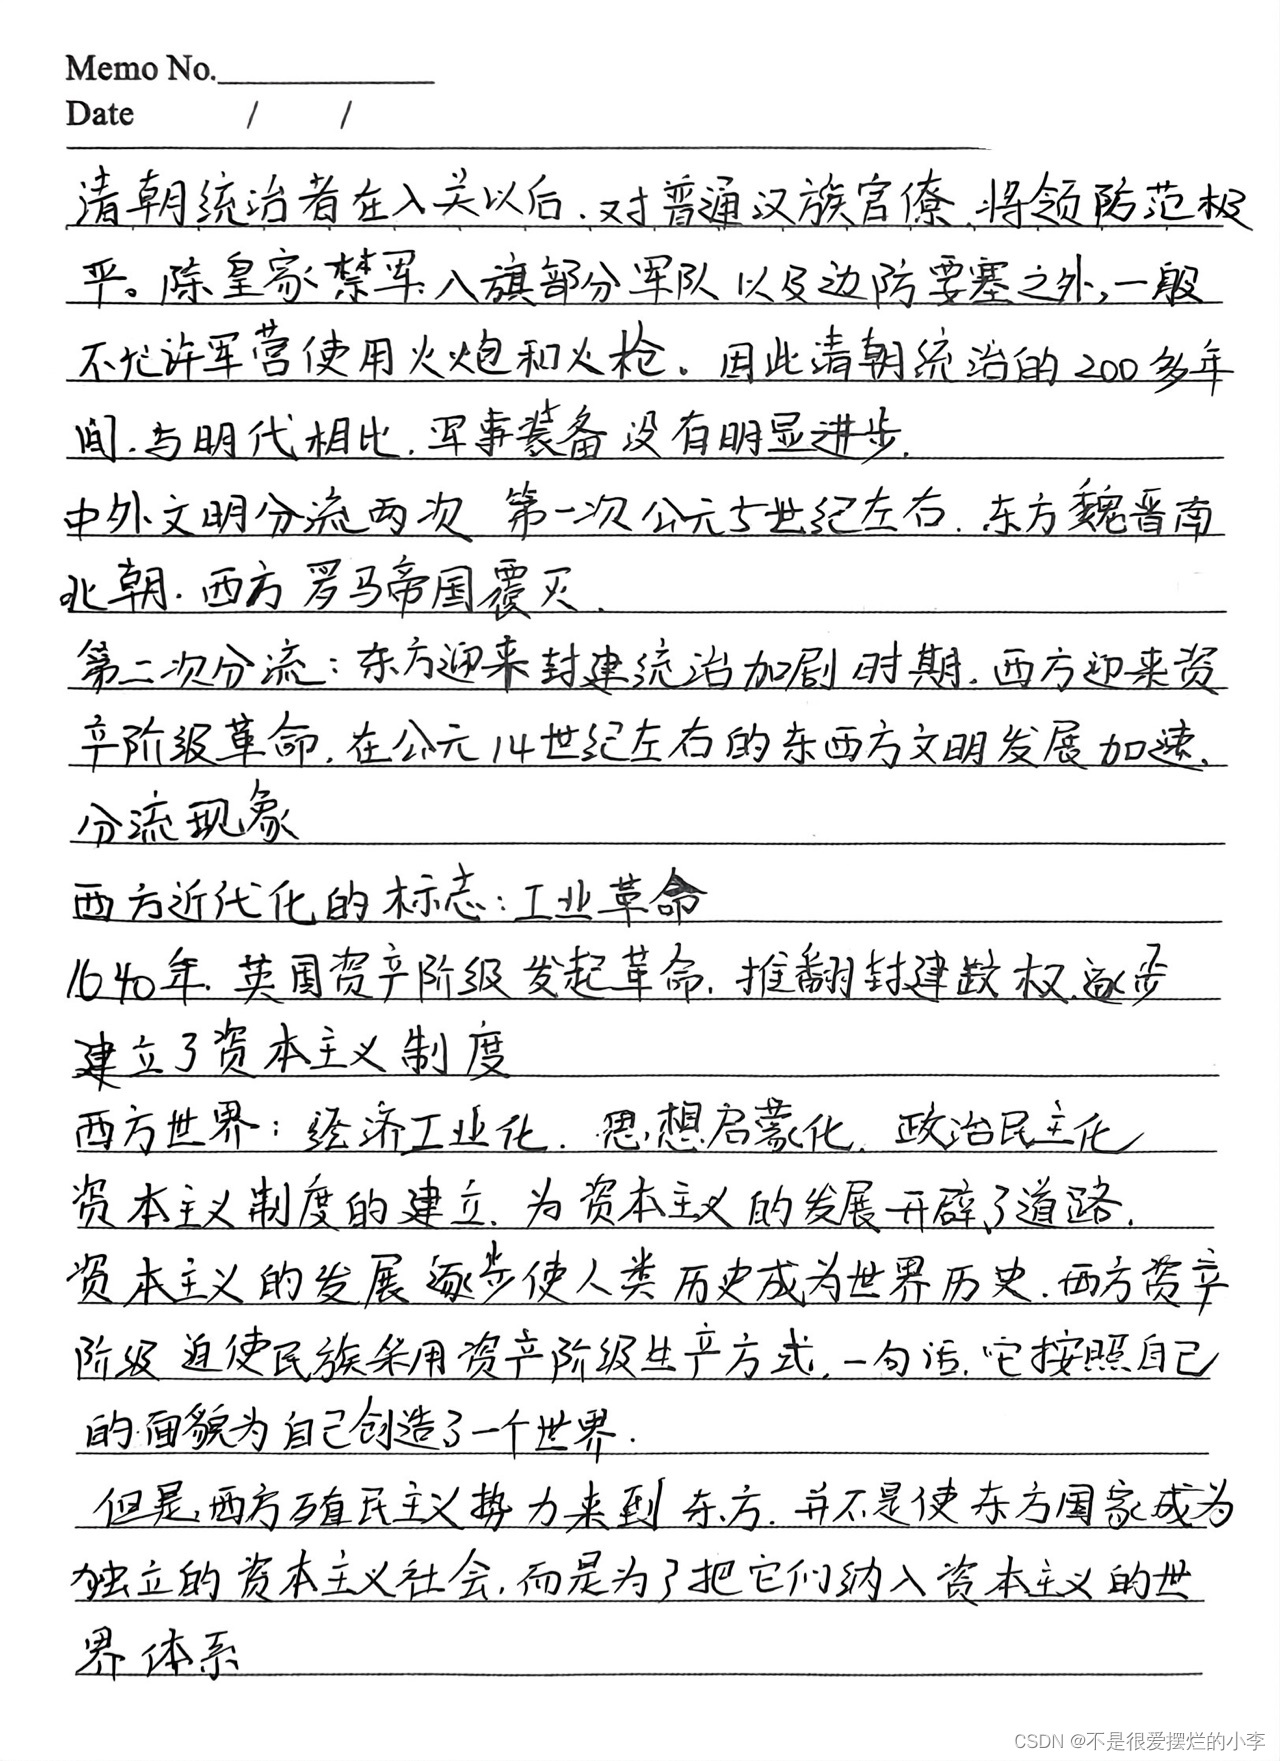 Memo No.
Date / /
清朝统治者在入关以后,对普通汉族官僚、将领防范极
严。除皇家禁军、八旗部分军队以及边防要塞之外,一般
不允许军营使用火炮和火枪。因此清朝统治的200多年
间,与明代相比,军事装备没有明显进步.
中外文明分流两次 第一次公元5世纪左右,东方魏晋南
北朝.西方罗马帝国覆灭.
第二次分流:东方迎来封建统治加剧时期,西方迎来资
产阶级革命,在公元14世纪左右的东西方文明发展加速,
分流现象
西方近代化的标志:工业革命
1640年,英国资产阶级发起革命,推翻封建政权,逐步
建立了资本主义制度
西方世界:经济工业化.思想启蒙化.政治民主化
资本主义制度的建立,为资本主义的发展开辟了道路.
资本主义的发展逐步使人类历史成为世界历史.西方资产
阶级迫使民族采用资产阶级生产方式,一句话,它按照自己
的面貌为自己创造了一个世界.
但是,西方殖民主义势力来到东方.并不是使东方国家成为
独立的资本主义社会,而是为了把它们纳入资本主义的世
界体系
CSDN @不是很爱摆烂的小李